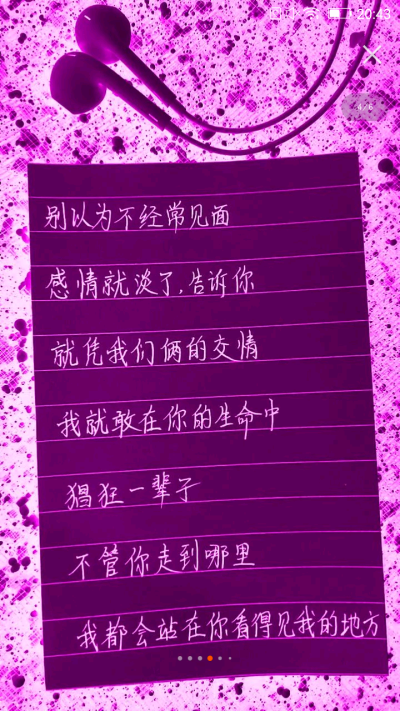 20:43
别以为不经常见面
感情就淡了,告诉你
就凭我们俩的交情
我就敢在你的生命中
猖狂一辈子
不管你走到哪里
我都会站在你看得见我的地方